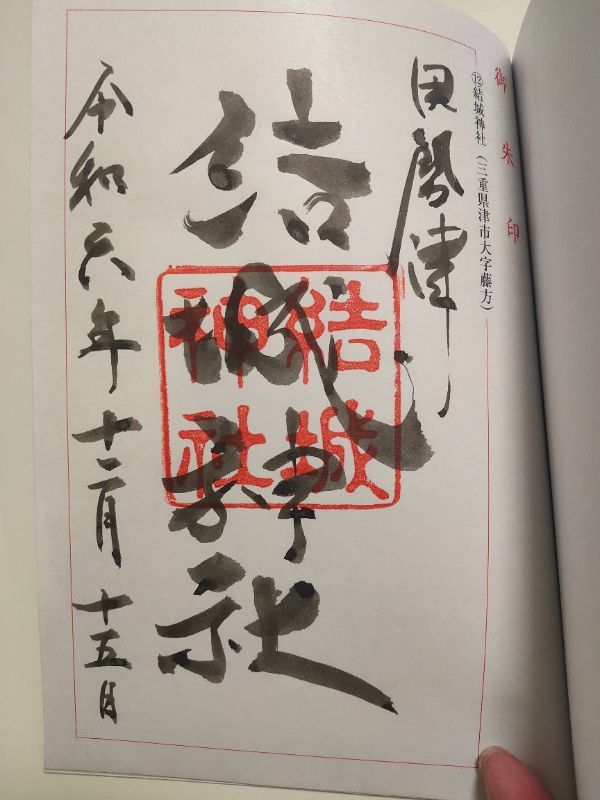 御朱印
⑫結城神社（三重県津市大字藤方）
伊勢津
結城神社
結城神社
令和六年十二月十五日